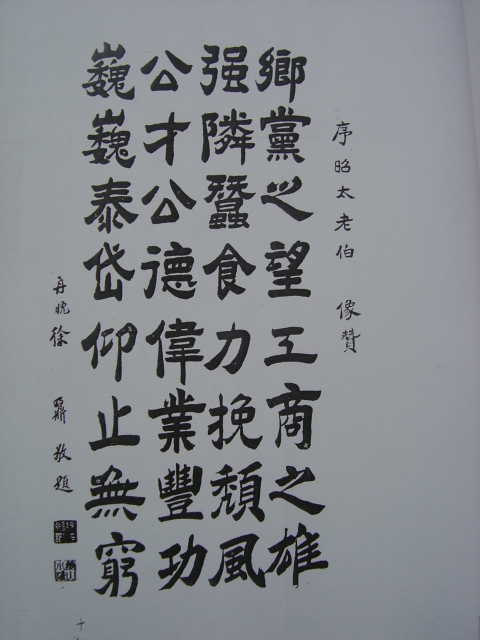 序昭太老伯 像贊
鄉黨之望工商之雄
强隣蠶食力挽頹風
公才公德偉業豐功
巍巍泰岱仰止無窮
再晚徐鼐敬題